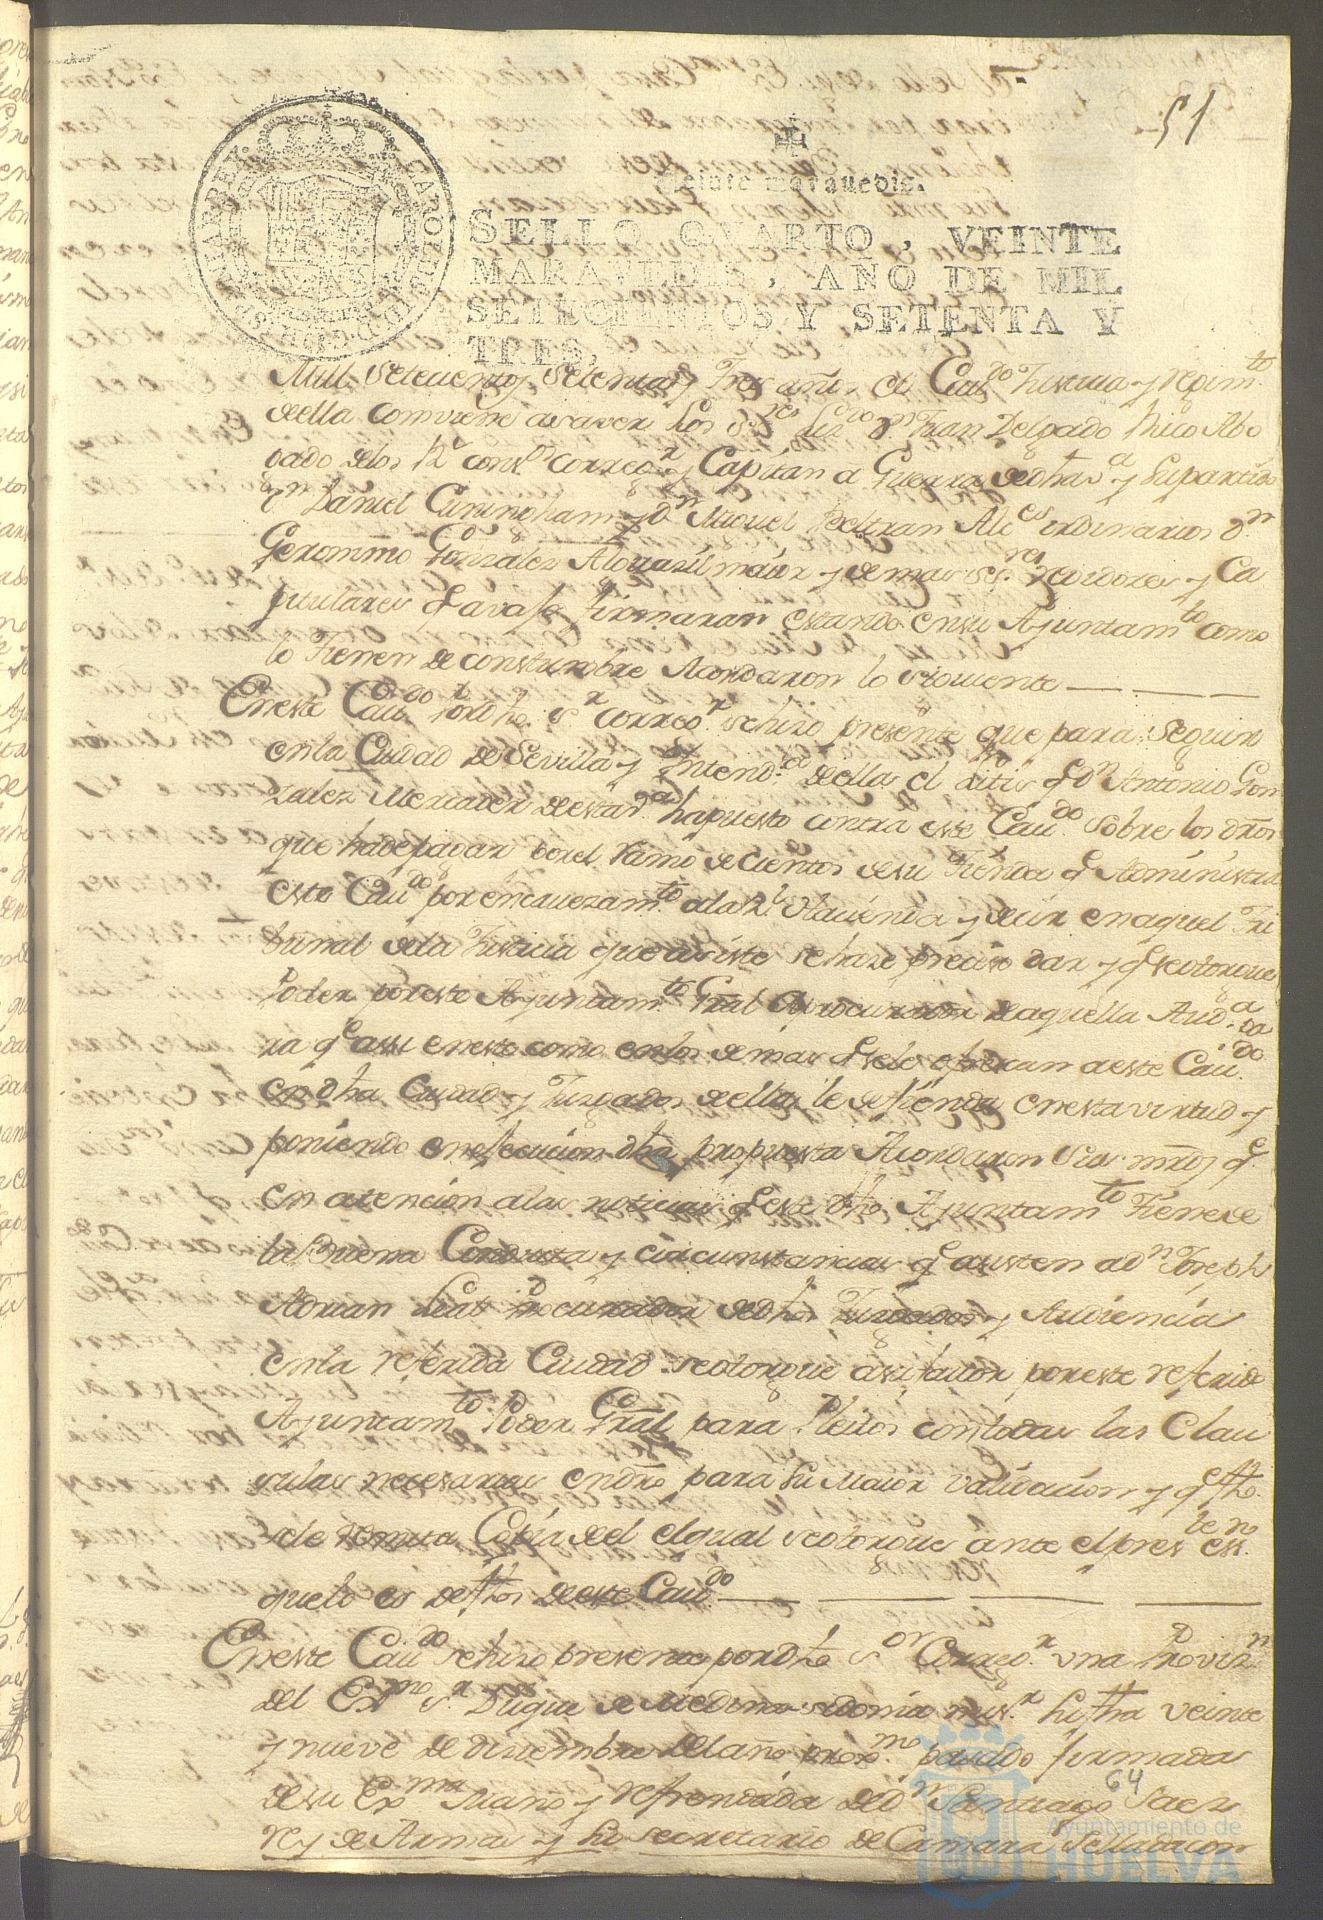 51
Veinte maravedis.
SELLO QVARTO, VEINTE
MARAVEDIS, AÑO DE MIL
SETECIENTOS Y SETENTA Y
TRES.
Mill setecientos setenta y Tres años el Cau.do Justicia y regim.to
della combiene a saver los S.res Liz.do D.n Fran Delgado Rico Abo
gado de los R.s cons.os correg.r y Capitan a Guerra de dha v.a y su partido
D.n Daniel Cuningham y D.n Miguel Beltran Alc.es ordinarios D.n
Geronimo Gonzalez Alguasil maior y demas S.res rexidores y Ca
pitulares q avajo firmaran estando en su Ajuntam.to como
lo Tienen de constumbre Acordaron lo siguiente
En este Cau.do Por dho S.r correg.r se hizo presente que para seguir
en la Ciudad de Sevilla y Intend.a della el litis q D.n Antonio Gon
zalez Mercader de esta v.a ha puesto contra este Cau.do sobre los dros
que ha de pagar por el ramo de cientos de su Tienda q Administra
este Cau.do por encavezam.to a la R.l Hacienda y decir en aquel Tri
bunal de la Justicia que asiste se haze preciso dar y q se otorgue
Poder por este Ajuntam.to Gral a procurador de aquella Aud.a
ra q assi en este como en los demas q se le ofrezcan a este Cau.do
en dha Ciudad y Juzgados della le defienda en esta virtud y
poniendo en ejecucion dha propuesta Acordaron sus mrds q
en atencion a las noticias q este dho Ajuntam.to Tiene de
la Buena Conducta y circunstancias q asisten a D.n Joseph
Adrian Leal Procurador de dhos Juzgados y Audiencia
en la referida Ciudad se otorgue a su favor por este referido
Ajuntam.to Poder Gral para Pleitos con todas las Clau
sulas necesarias en dro para su Maior validacion y q fho
se le remita Copia del el qual se otorgue ante el pres.te ess.no
que lo es de fhos de este Cau.do
En este Cau.do se hizo presente por dho S.or Correg.r una Provis.n
del Ex.mo S.r Duque de Medina sidonia mi s.r su fha veinte
y nueve de diziembre del año prox.mo pasado firmada
de su Ex.ma Mano y refrendada de D.n Santiago Saez
rey de Armas y su secretario de Camara Sellada con
64
Ayuntamiento de
HUELVA